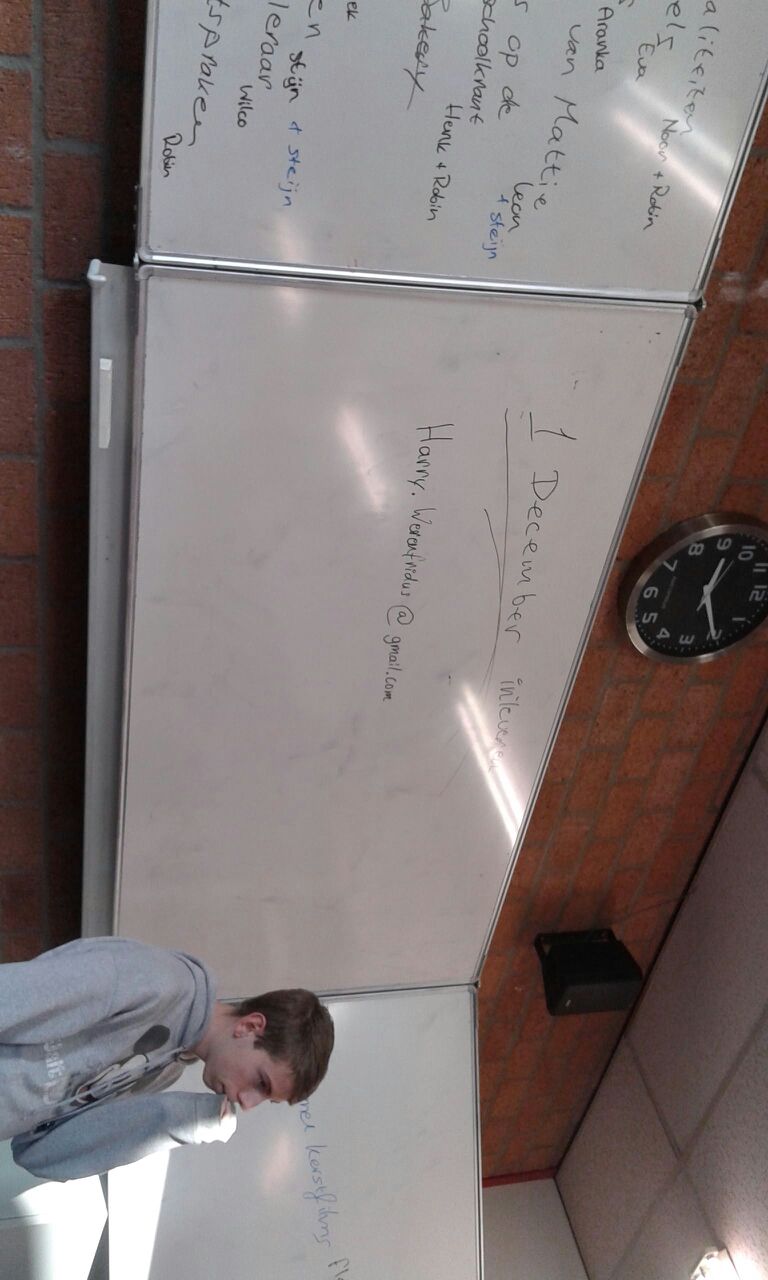 aliteiten
Noor + Robin
els
Eva
Aranka
van Mattie
op de Leon
schoolkrant + steijn
Bakery
Henk + Robin
ek
en steijn + steijn
lenaar
Wilco
Robin
1 December inleveren
Harry.Werenfridus@gmail.com
kerstfilms
12
1
2
3
4
5
6
7
8
9
10
11